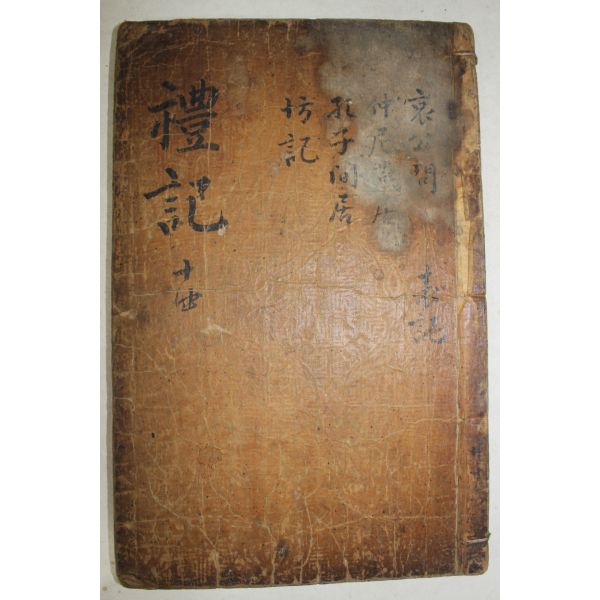 哀公問
表記
仲尼燕居
孔子間居
坊記
禮記
十